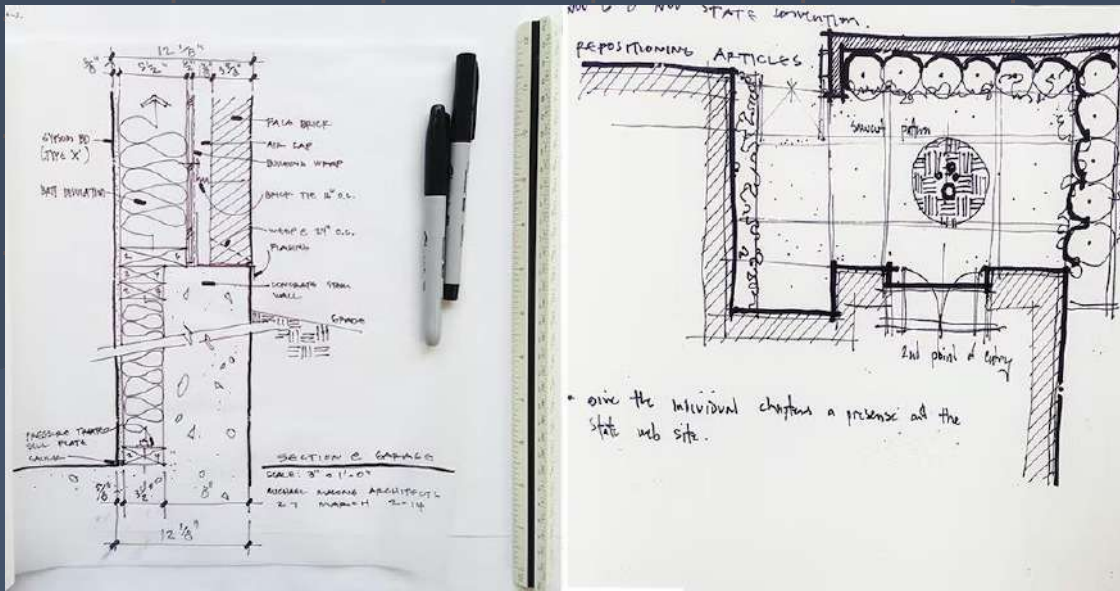 12 1/8"
5/8"
5 1/2"
1/2"
3 5/8"
GYPSUM BD
(TYPE 'X')
BATT INSULATION
FACE BRICK
AIR GAP
BUILDING WRAP
BRICK TIE 16" O.C.
WEEP @ 24" O.C.
FLASHING
CONCRETE STEM
WALL
GRADE
PRESSURE TREATED
SILL PLATE
SECTION @ GARAGE
SCALE: 3" = 1'-0"
MICHAEL MALONE ARCHITECTS
27 MARCH 2014
5/8"
3 1/2"
8"
12 1/8"
STATE CONVENTION.
REPOSITIONING ARTICLES
2nd point of entry
• Give the individual chapters a presense on the
state web site.